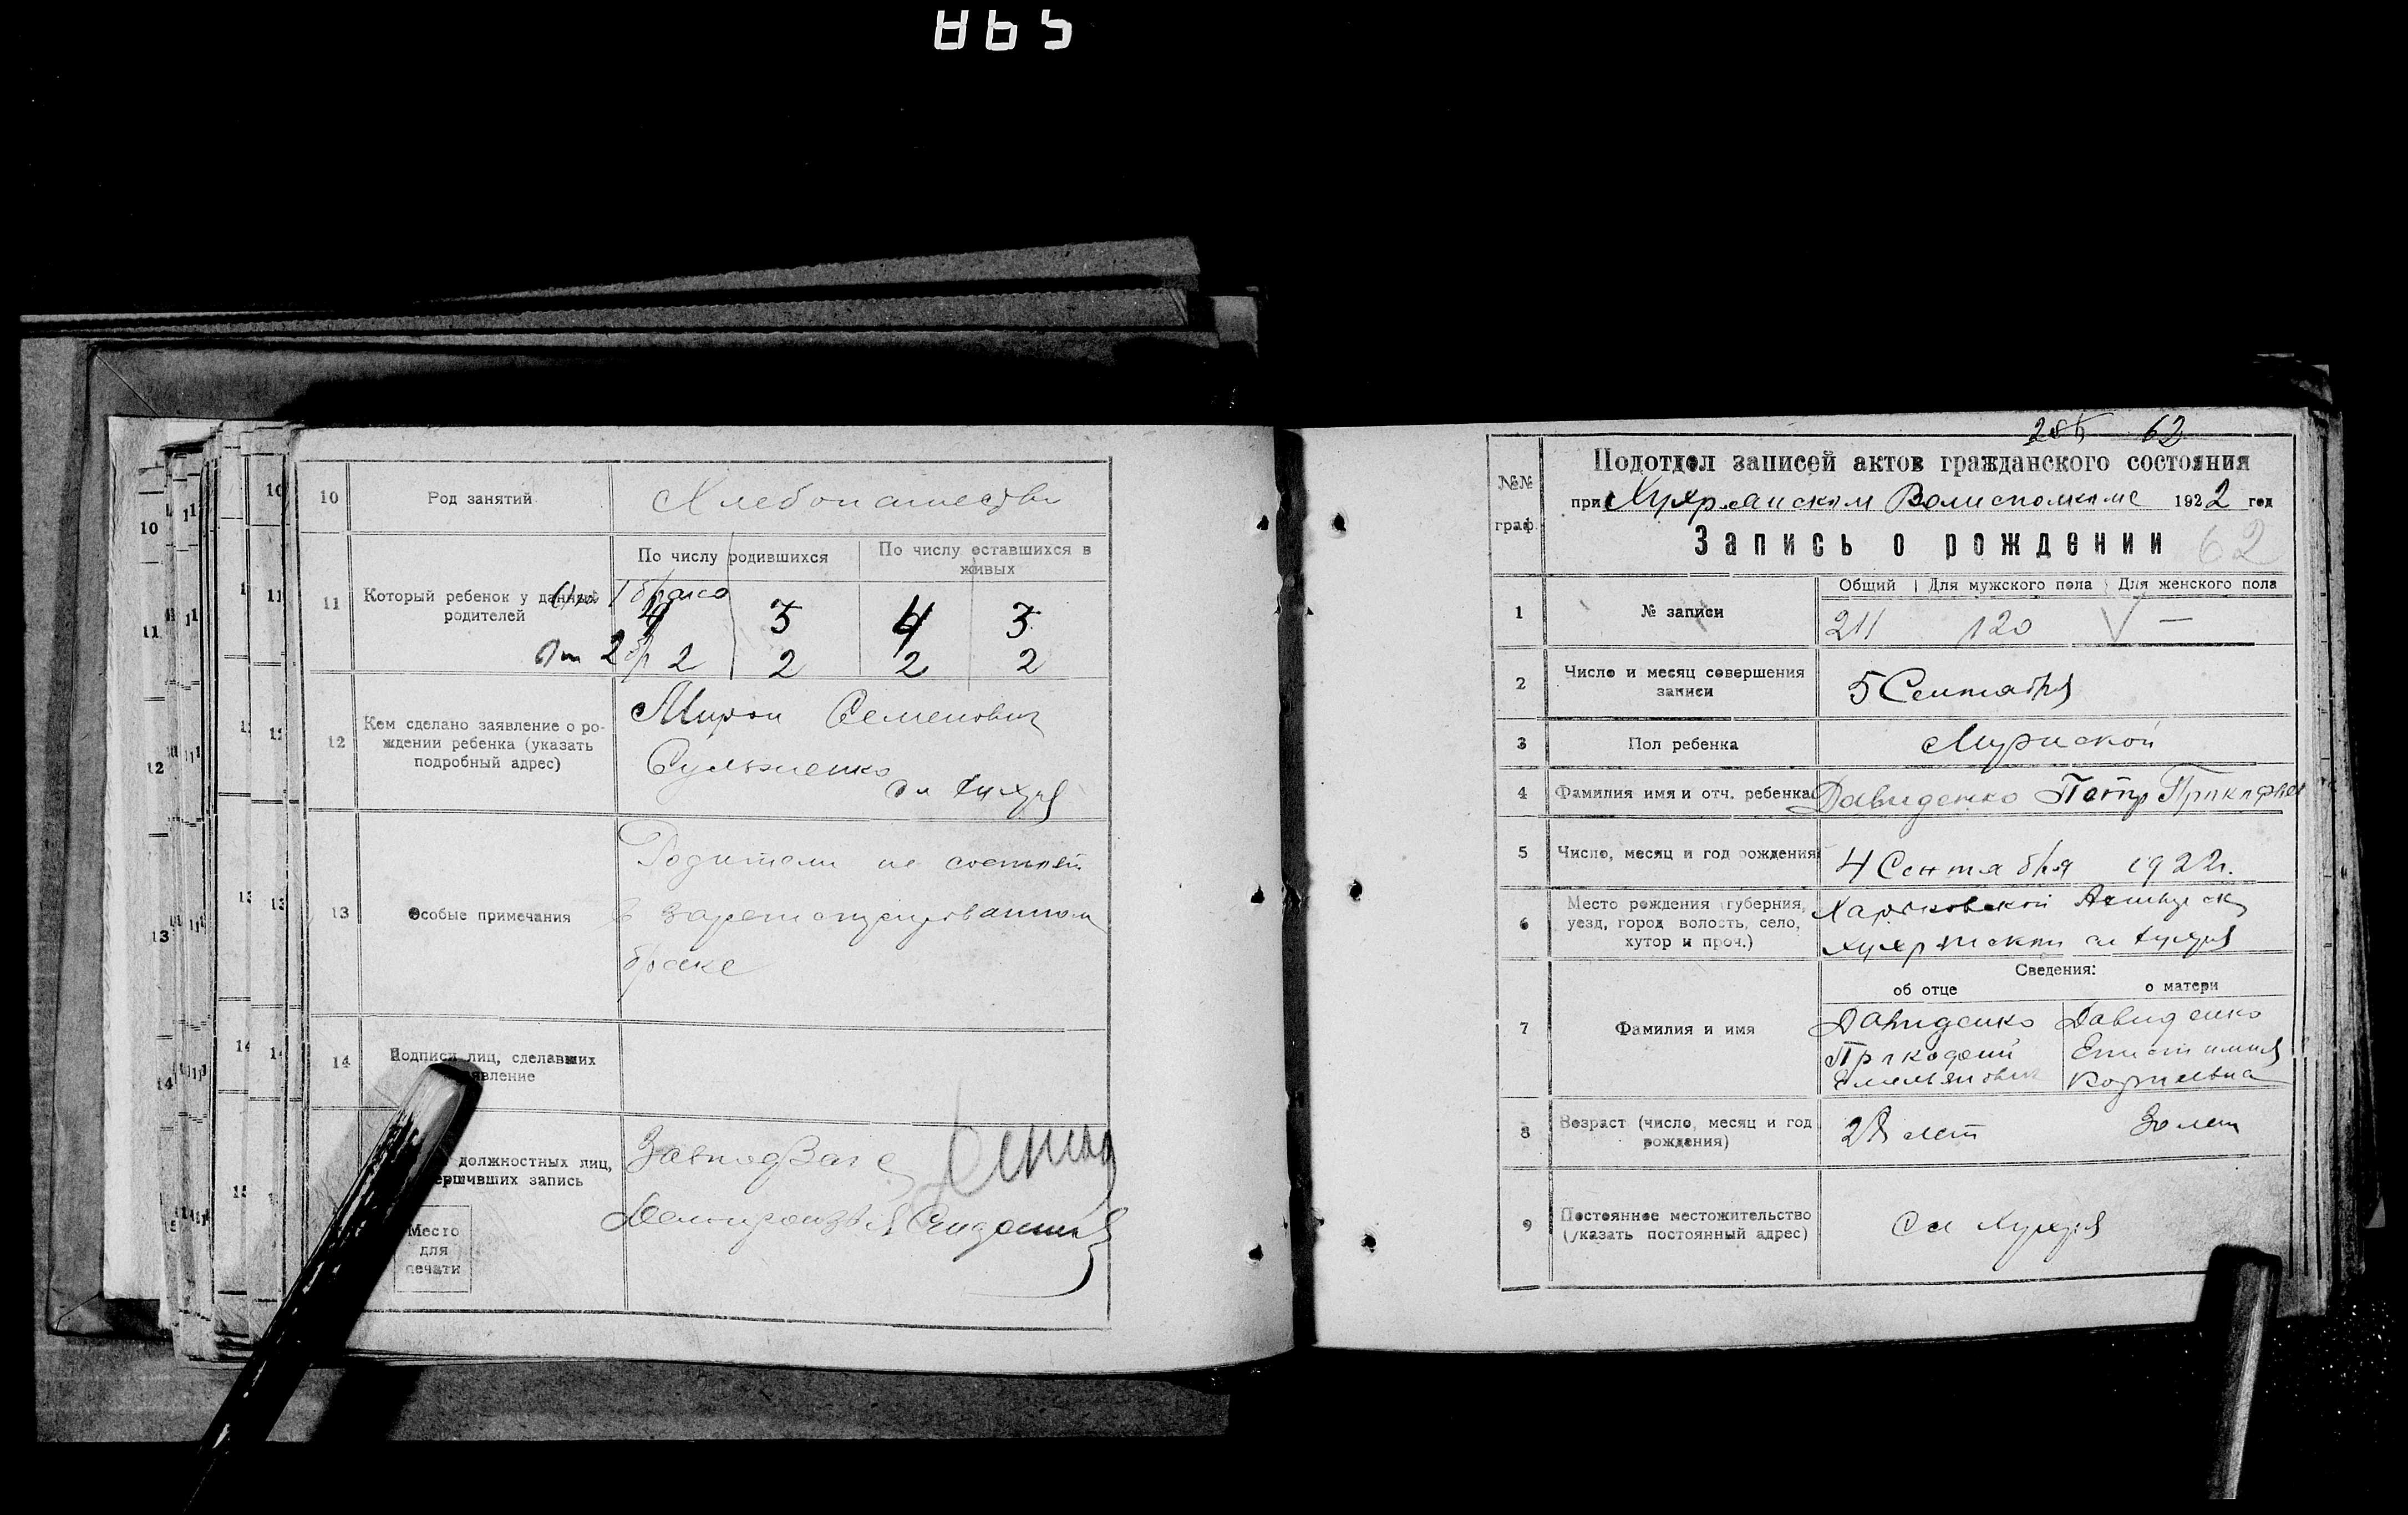 865
10 Род занятий Хлебопашество
11 Который ребенок у данных родителей
По числу родившихся
По числу оставшихся в живых
От 1 брака
4 3 4 3
От 2 бр 2 2 2 2
12 Кем сделано заявление о рождении ребенка (указать подробный адрес)
Мирон Семенович
Сульженко
сл Хухря
13 Особые примечания
Родители не состоят
в зарегистрированном
браке
14 Подписи лиц, сделавших
должностных лиц,
запись
Место
для
печати
62
№№ граф.
Подотдел записей актов гражданского состояния
при Хухрянском Волисполкоме 1922 год
Запись о рождении 62
Общий Для мужского пола Для женского пола
1 № записи 211 120 V —
2 Число и месяц совершения записи 5 Сентября
3 Пол ребенка Мужской
4 Фамилия имя и отч. ребенка Давиденко Петр
5 Число, месяц и год рождения 4 Сентября 1922г.
6 Место рождения (губерния, уезд, город волость, село, хутор и проч.)
Харьковской
сл Хухря
Сведения:
об отце о матери
7 Фамилия и имя
Давиденко Давиденко
Емельянович Корнеевна
8 Возраст (число, месяц и год рождения) 28 лет 30 лет
9 Постоянное местожительство (указать постоянный адрес) Сл Хухря